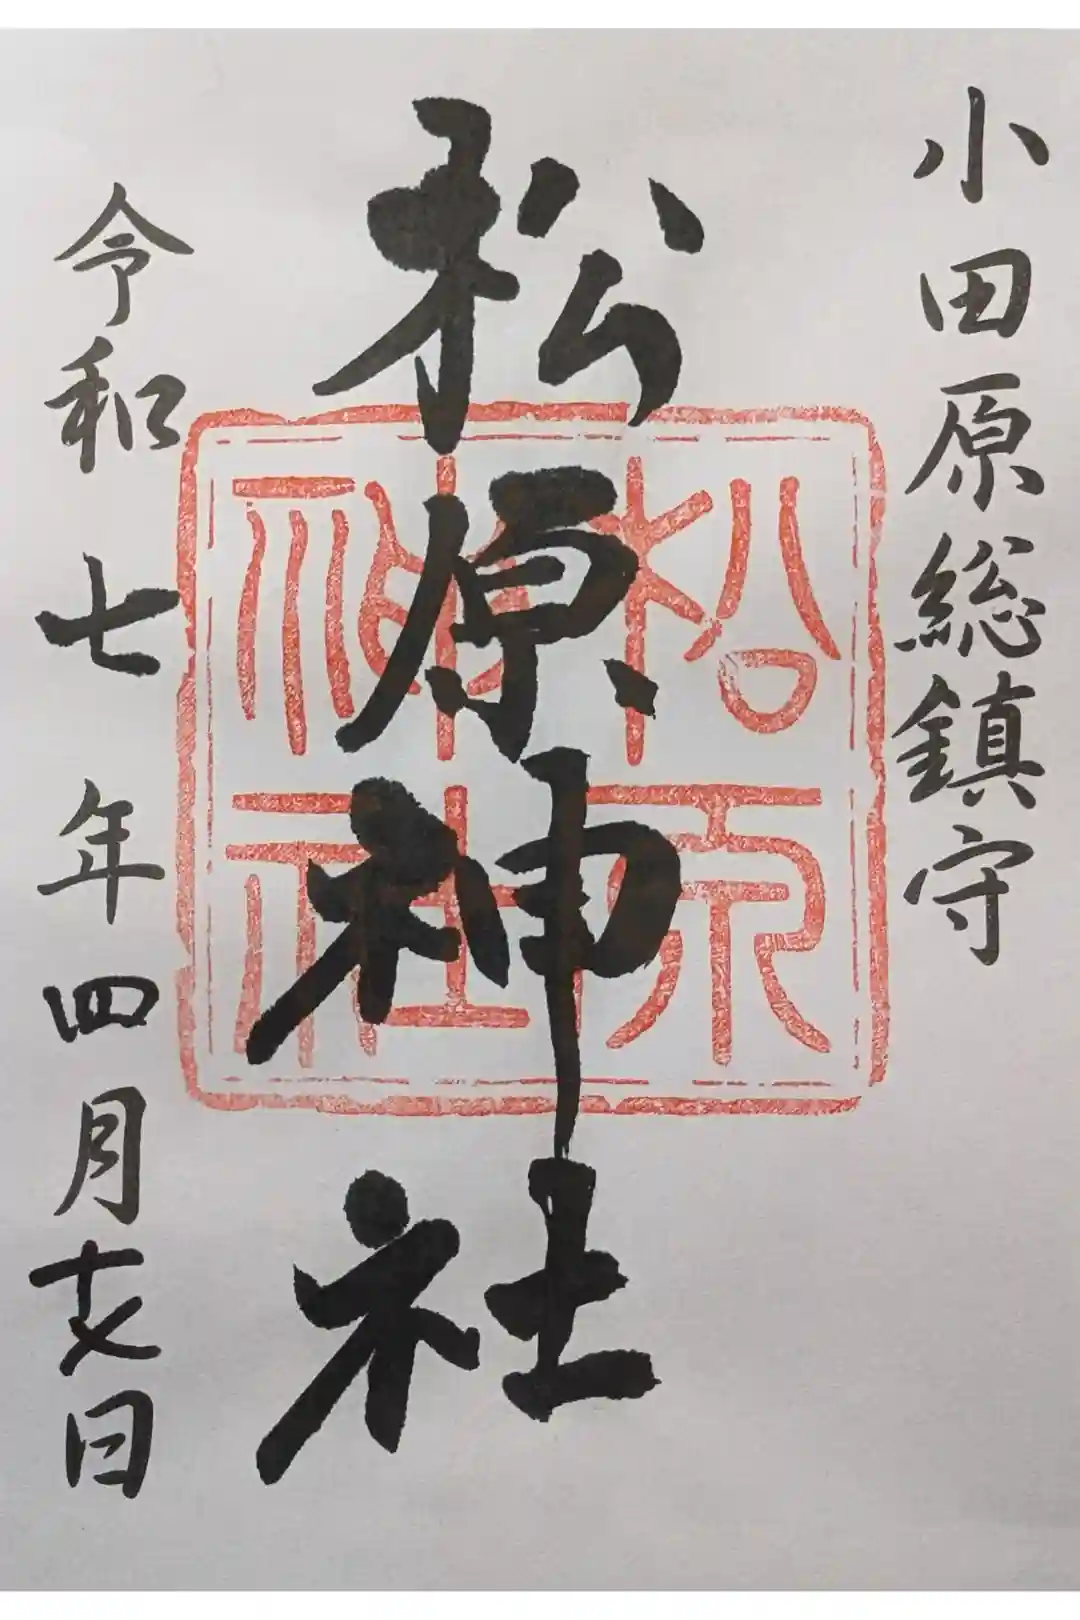 小田原総鎮守
松原神社
松原
神社
令和七年四月十 日